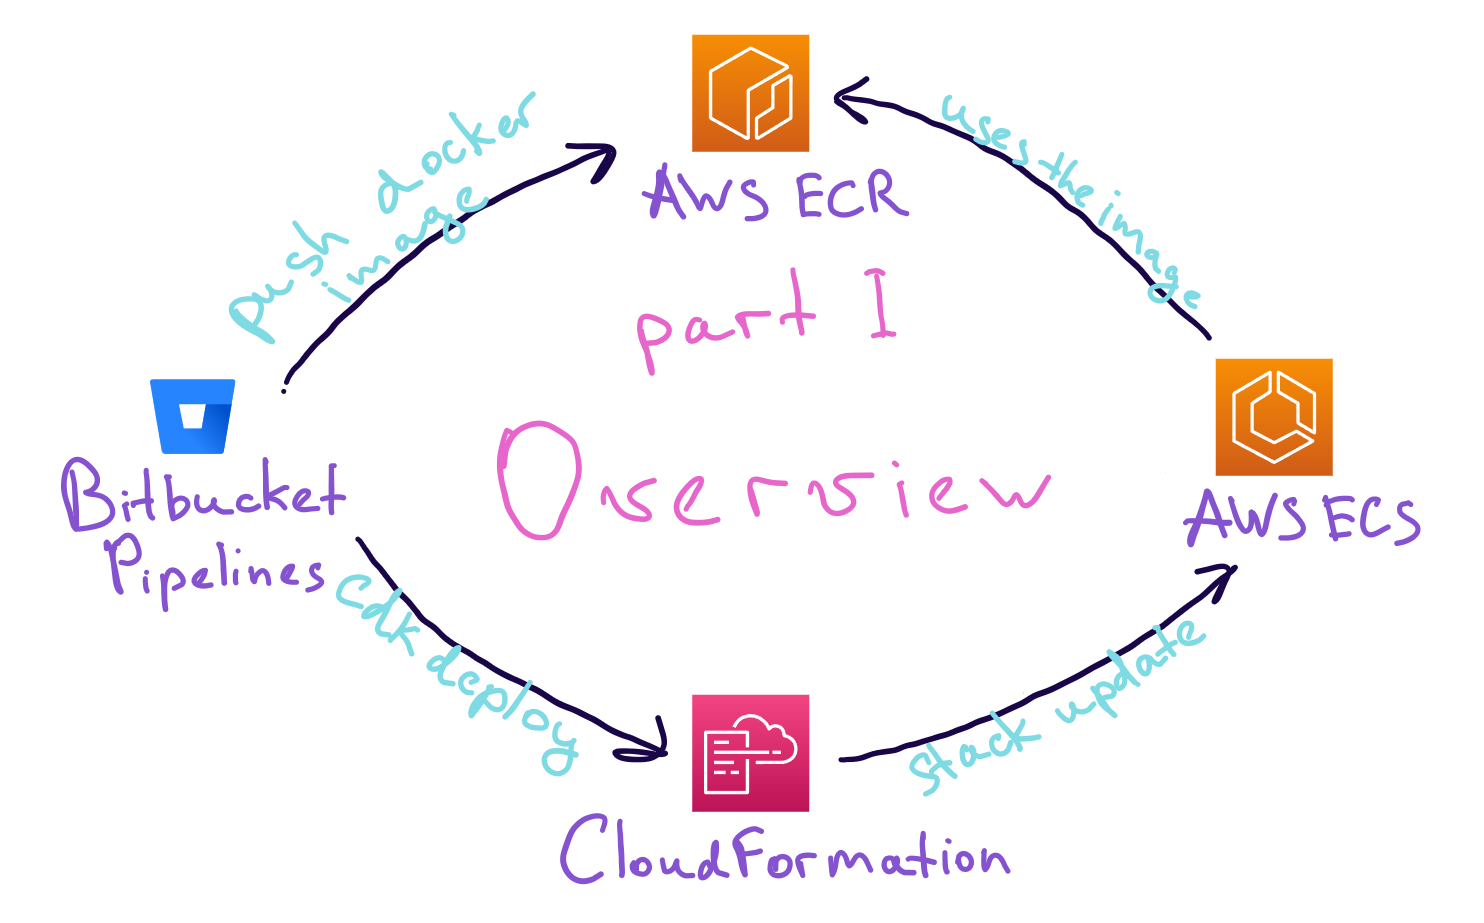 push docker
image
AWS ECR
uses the image
part I
Overview
Bitbucket
Pipelines
AWS ECS
cdk deploy
stack update
CloudFormation